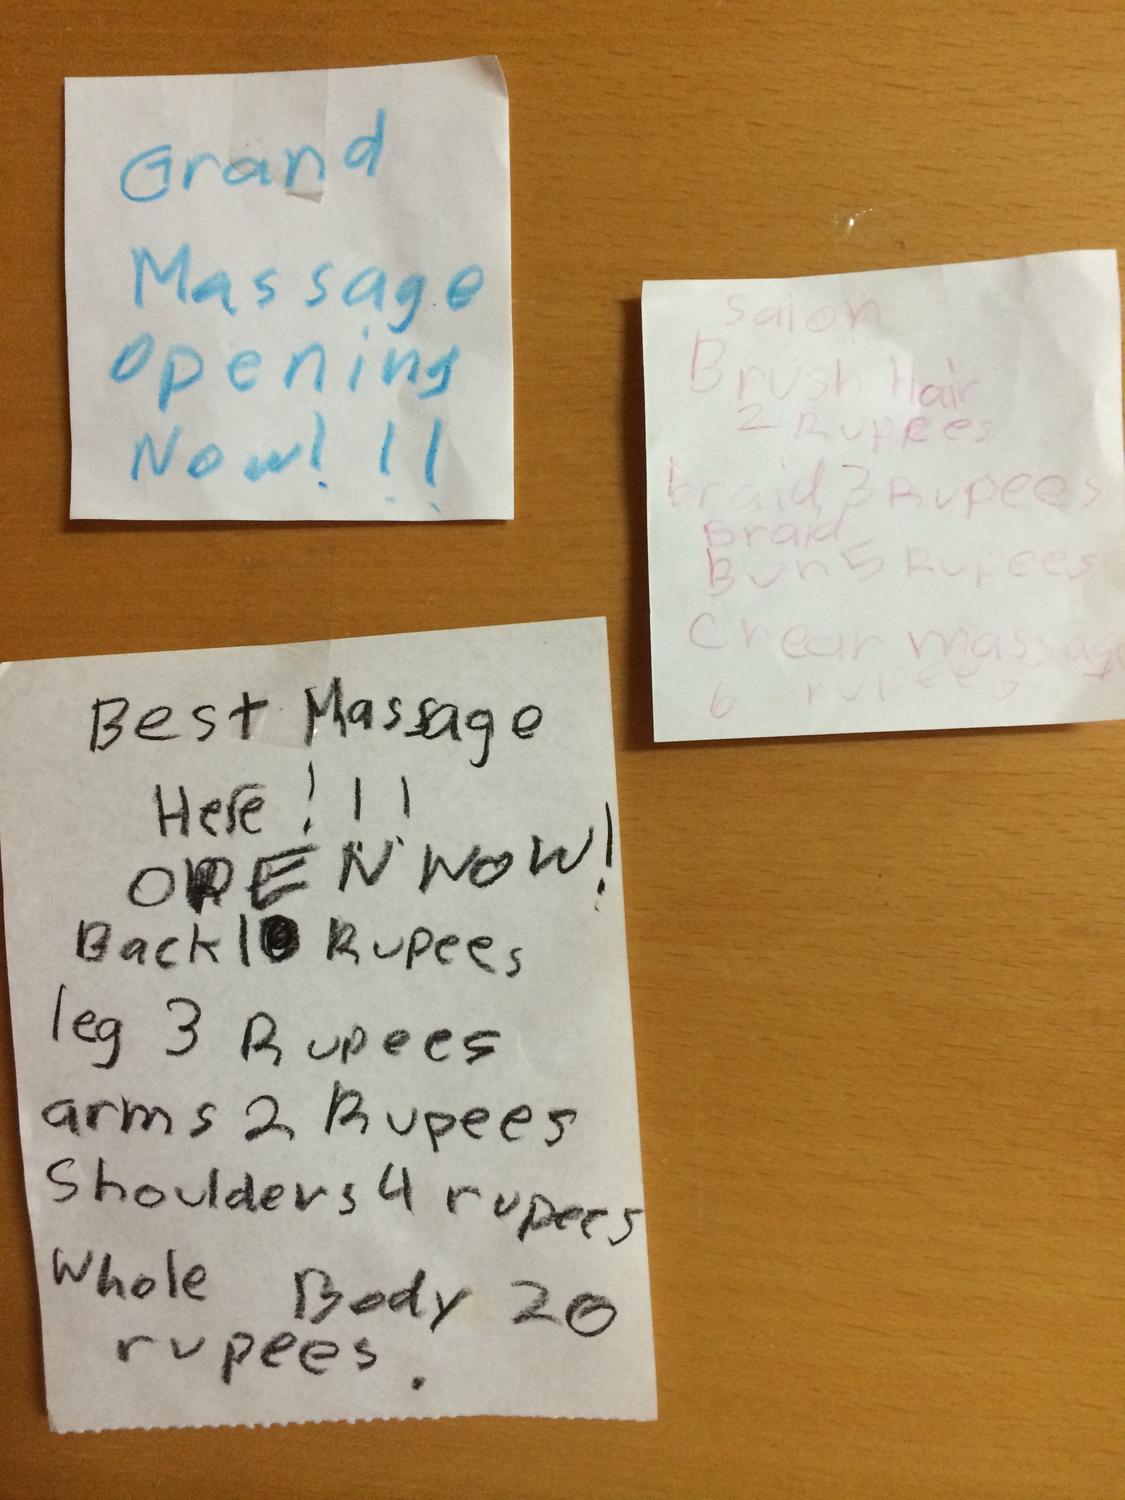 Grand
Massage
Opening
Now!!!
Salon
Brush Hair
2 Rupees
braid 3 Rupees
Braid
Bun 5 Rupees
Crear massage
6 rupees
Best Massage
Here!!!
OPEN NOW!
Back 10 Rupees
leg 3 Rupees
arms 2 Rupees
Shoulders 4 rupees
Whole Body 20
rupees.